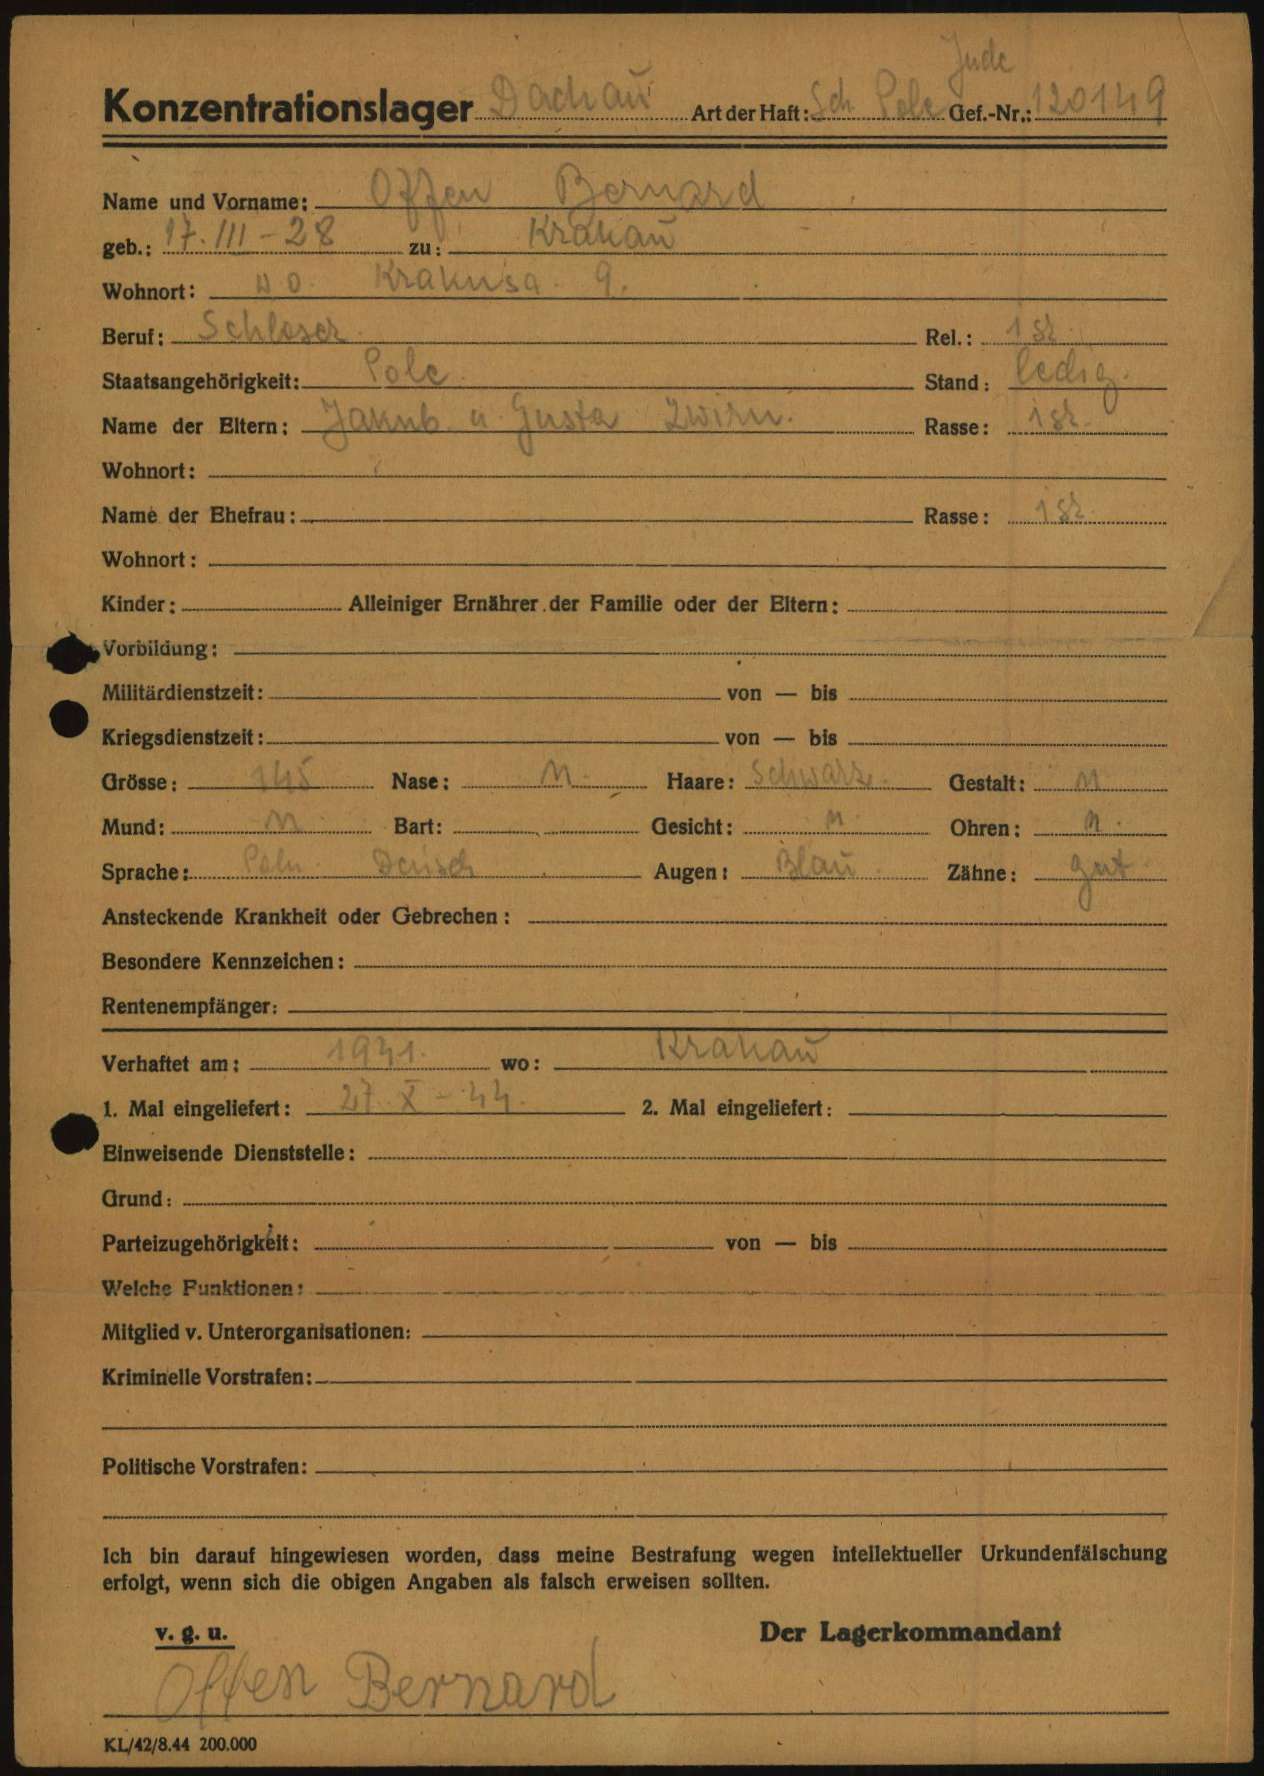 Jude
Konzentrationslager Dachau Art der Haft: Sch. Pole Gef.-Nr.: 120149
Name und Vorname: Offen Bernard
geb.: 17. III - 28 zu: Krakau
Wohnort: w o. Krakusa 9.
Beruf: Schloser Rel.: isr.
Staatsangehörigkeit: Pole Stand: ledig.
Name der Eltern: Jakub u. Gusta Zwirn. Rasse: isr.
Wohnort:
Name der Ehefrau: Rasse: isr.
Wohnort:
Kinder: Alleiniger Ernährer der Familie oder der Eltern:
Vorbildung:
Militärdienstzeit: von — bis
Kriegsdienstzeit: von — bis
Grösse: 145 Nase: n. Haare: Schwarz. Gestalt: n
Mund: n. Bart: Gesicht: n. Ohren: n.
Sprache: Poln. Deusch Augen: Blau Zähne: gut.
Ansteckende Krankheit oder Gebrechen:
Besondere Kennzeichen:
Rentenempfänger:
Verhaftet am: 1941. wo: Krakau
1. Mal eingeliefert: 27. X - 44. 2. Mal eingeliefert:
Einweisende Dienststelle:
Grund:
Parteizugehörigkeit: von — bis
Welche Funktionen:
Mitglied v. Unterorganisationen:
Kriminelle Vorstrafen:
Politische Vorstrafen:
Ich bin darauf hingewiesen worden, dass meine Bestrafung wegen intellektueller Urkundenfälschung
erfolgt, wenn sich die obigen Angaben als falsch erweisen sollten.
v. g. u. Der Lagerkommandant
Offen Bernard
KL/42/8.44 200.000